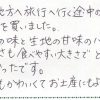 地方へ旅行へ行く途中の
を買いました。
の味と生地の甘味のバ
さも食べやすい大きさで と
ったです。
もかわいくてお土産にもよ